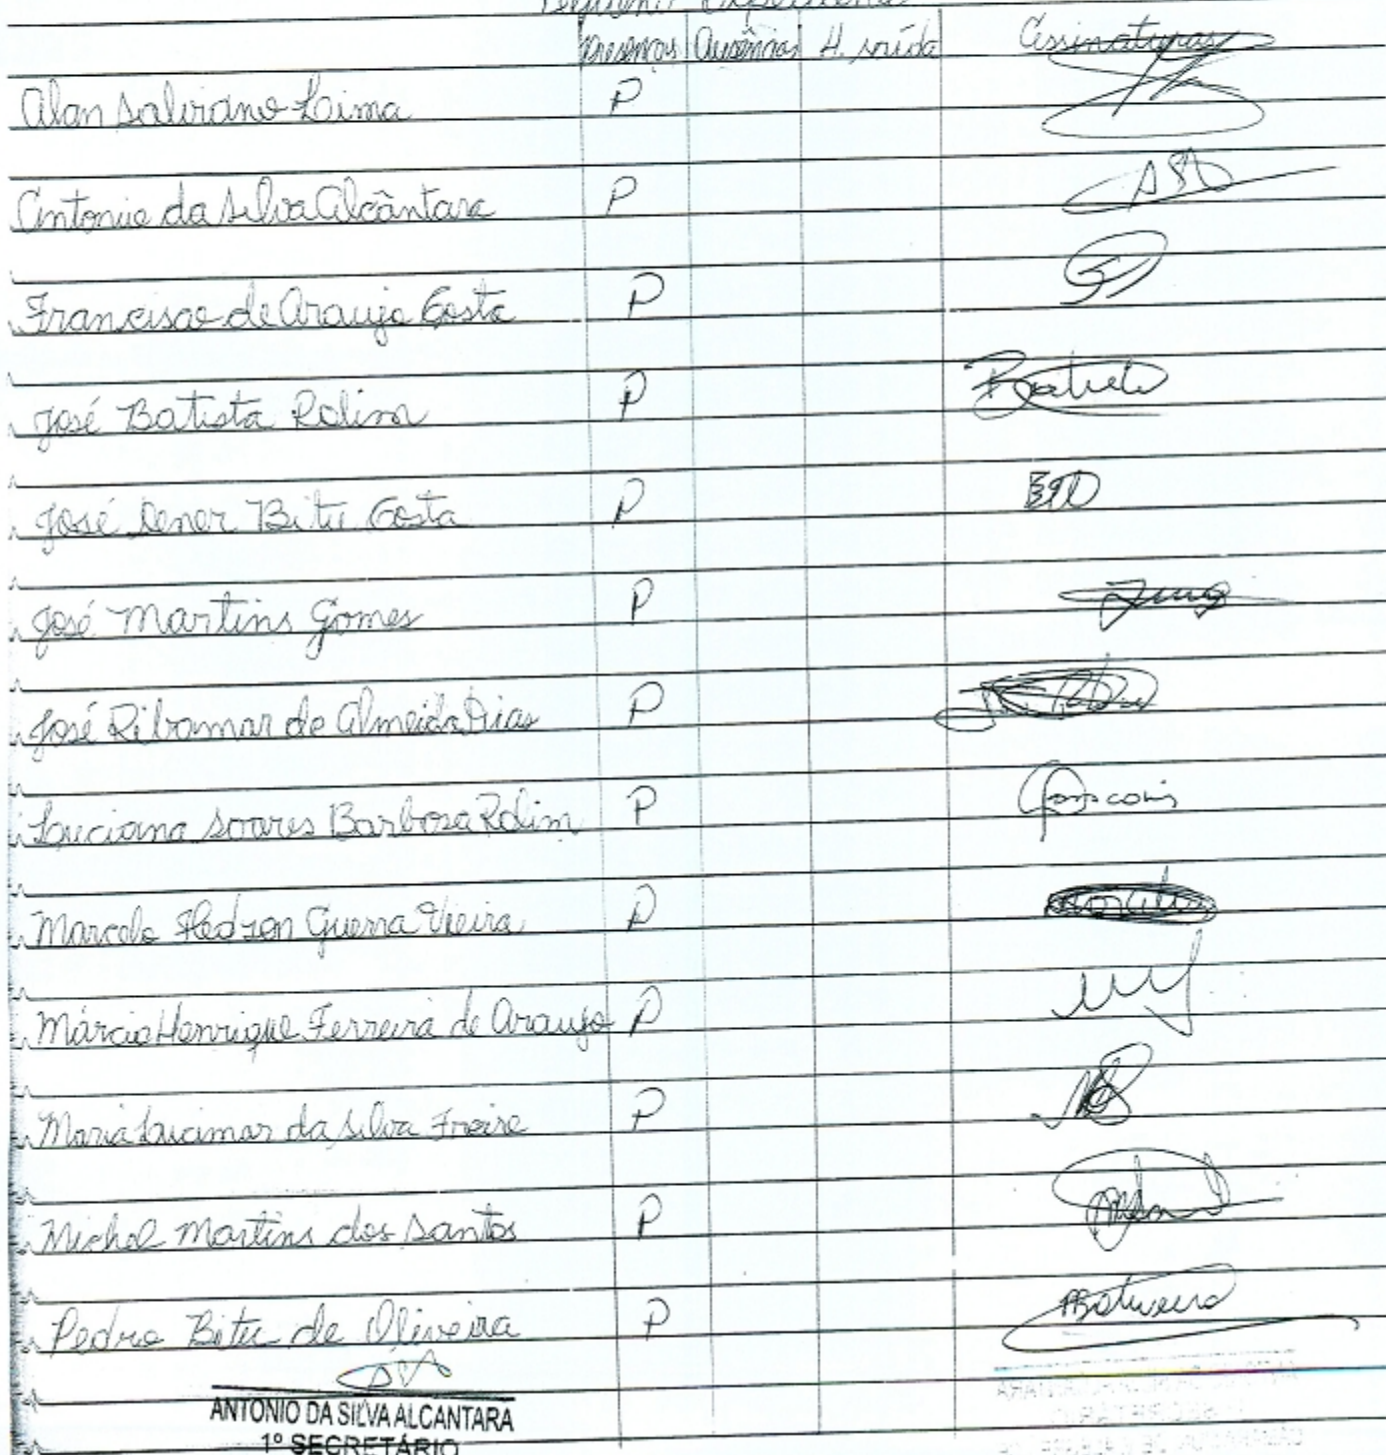 Pequeno Expediente
Presenças Ausências H. saída Assinaturas
Alan Salviano Lima P
Antonio da Silva Alcântara P ASA
Francisco de Araujo Costa P
José Batista Rolim P Batista
José Dener Bitu Costa P
José Martins Gomes P
José Ribamar de Almeida Dias P
Luciana Soares Barbosa Rolim P
Marcelo Hedson Guerra Vieira P
Márcio Henrique Ferreira de Araujo P
Maria Lucimar da Silva Freire P
Michel Martins dos Santos P
Pedro Bitu de Oliveira P
ANTONIO DA SILVA ALCANTARA
1º SECRETÁRIO